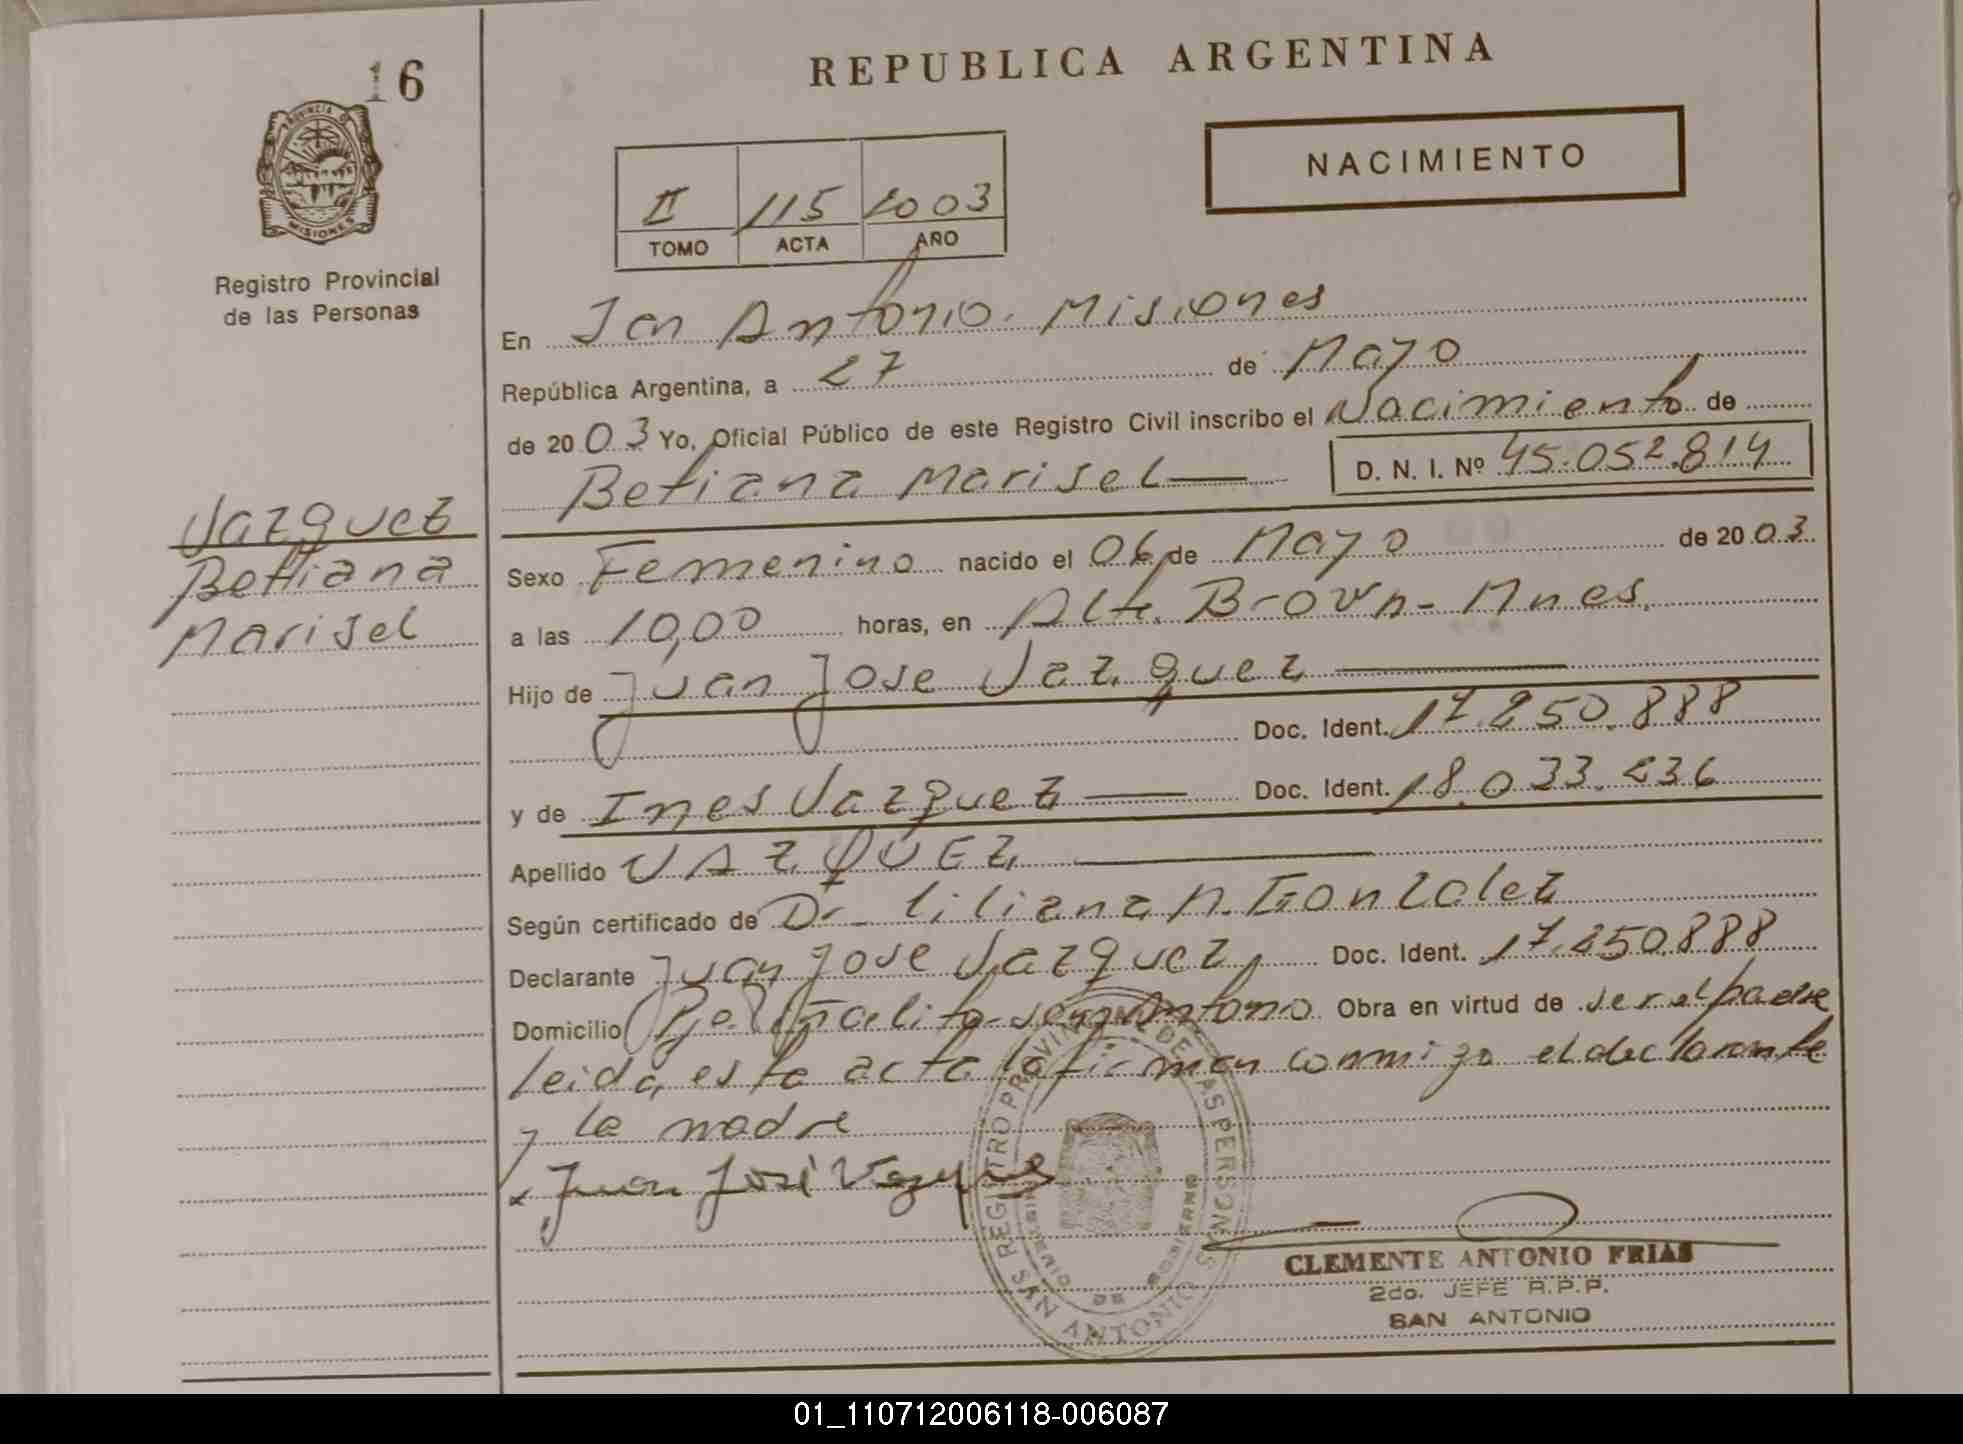 16
PROVINCIA DE
MISIONES
Registro Provincial
de las Personas
Vazquez
Betiana
Marisel
REPUBLICA ARGENTINA
NACIMIENTO
II 115 2003
TOMO ACTA AÑO
En San Antonio. Misiones
República Argentina, a 27 de Mayo
de 2003 Yo, Oficial Público de este Registro Civil inscribo el Nacimiento de
Betiana Marisel D. N. I. Nº 45.052.814
Sexo Femenino nacido el 06 de Mayo de 2003
a las 10,00 horas, en Alte. Brown - Mnes.
Hijo de Juan Jose Vazquez
Doc. Ident. 17.250.888
y de Ines Vazquez Doc. Ident. 18.033.236
Apellido VAZQUEZ
Según certificado de Dr. Liliana A. Gonzalez
Declarante Juan Jose Vazquez Doc. Ident. 17.250.888
Domicilio San Antonio Obra en virtud de ser el padre
leida esta acta la firman conmigo el declarante
y la madre
x Juan José Vazquez
REGISTRO PROVINCIAL DE LAS PERSONAS
MINISTERIO DE GOBIERNO
SAN ANTONIO
CLEMENTE ANTONIO FRIAS
2do. JEFE R.P.P.
SAN ANTONIO
01_110712006118-006087